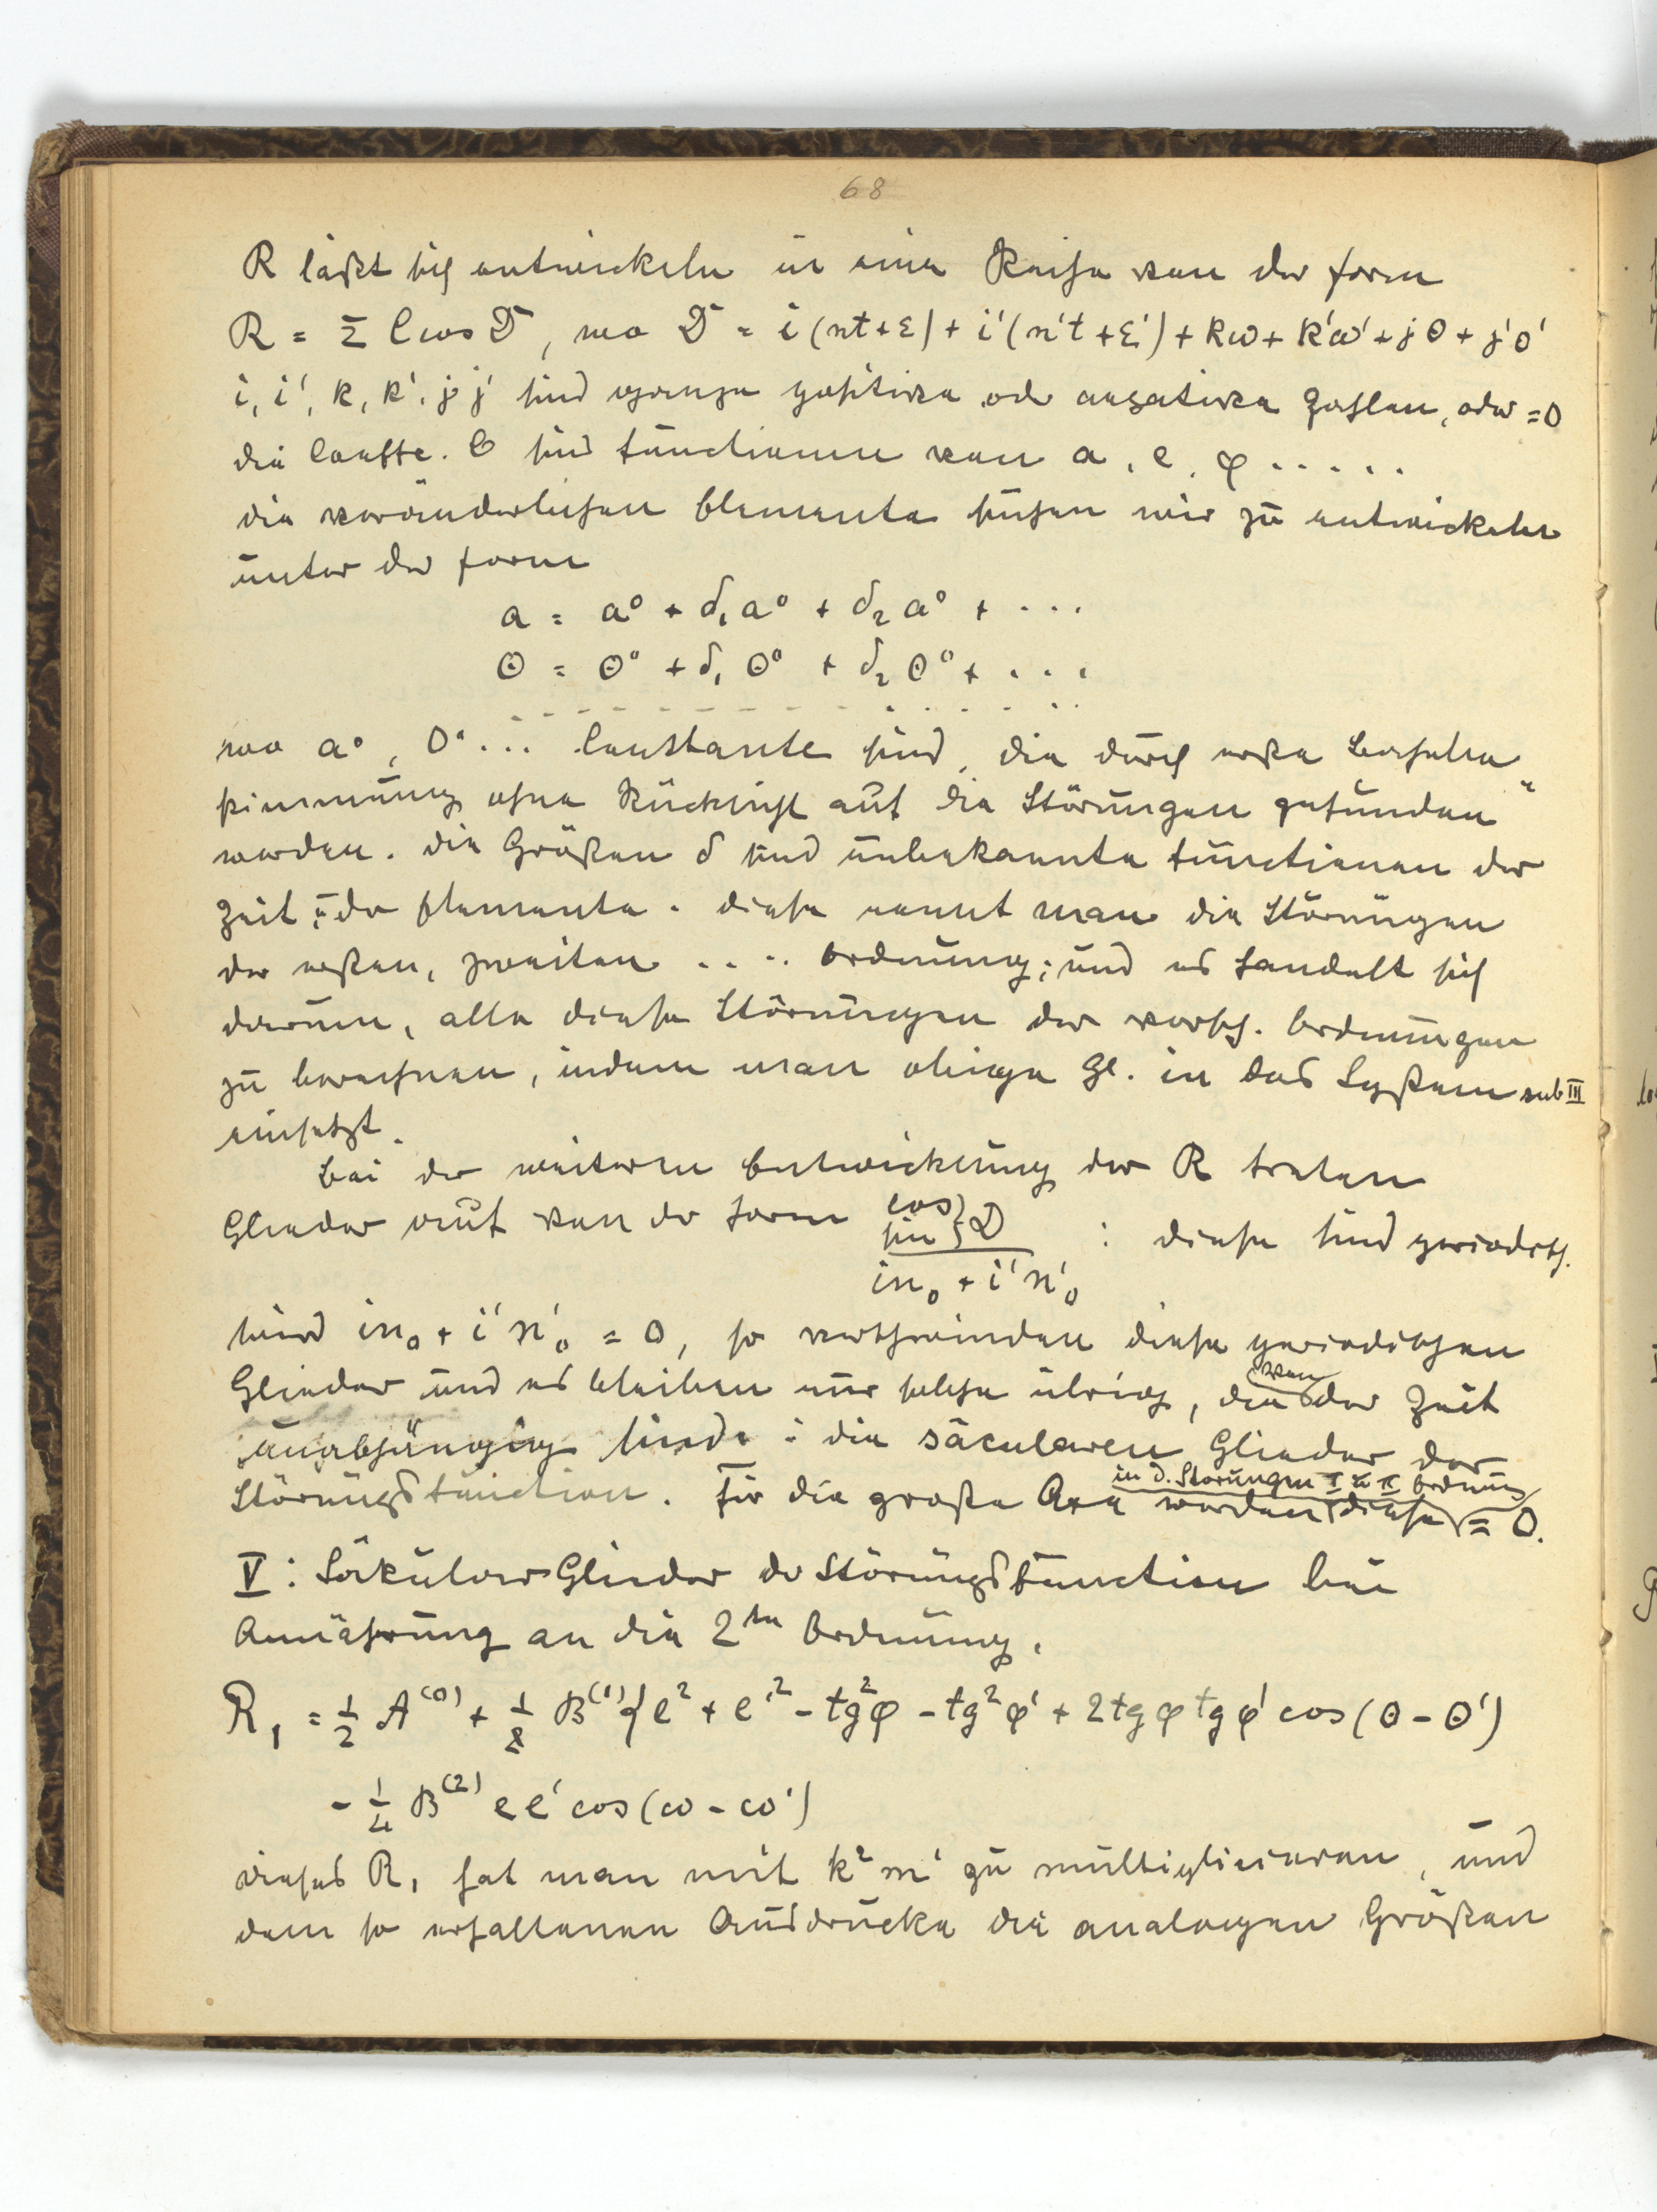 68
R läßt sich entwickeln in eine Reihe von der Form
R = Σ C cos D, wo D = i(nt+ε) + i'(n't+ε') + kω + k'ω' + jθ + j'θ'
i, i', k, k', j, j' sind ganze positive od. negative Zahlen, oder = 0
die Coeffte. C sind Functionen von a, e, φ . . . . .
die veränderlichen Elemente suchen wir zu entwickeln
unter der Form
a = a⁰ + δ₁a⁰ + δ₂a⁰ + . . .
θ = θ⁰ + δ₁θ⁰ + δ₂θ⁰ + . . .
wo a⁰, θ⁰ . . . Constante sind, die durch erste Bahnbe-
stimmung ohne Rücksicht auf die Störungen gefunden
werden. Die Größen δ sind unbekannte Functionen der
Zeit u. der Elemente. Diese nennt man die Störungen
der ersten, zweiten . . . . Ordnung; und es handelt sich
darum, alle diese Störungen der versch. Ordnungen
zu berechnen, indem man obige Gl. in das System sub III
einsetzt.
Bei der weiteren Entwicklung der R treten
Glieder auf von der Form cos / sin } D / in₀ + i'n'₀ : diese sind periodisch.
Wird in₀ + i'n'₀ = 0, so verschwinden diese periodischen
Glieder und es bleiben nur solche übrig, die von der Zeit
unabhängig sind: die säcularen Glieder der
Störungsfunction. Für die große Axe werden diese in d. Störungen I u II Ordnung = 0.
V: Säkular Glieder der Störungsfunction bei
Annäherung an die 2te Ordnung.
R₁ = ½ A⁽⁰⁾ + ⅛ B⁽¹⁾{e² + e'² - tg²φ - tg²φ' + 2tgφ tgφ' cos(θ - θ')
- ¼ B⁽²⁾ ee' cos(ω - ω')
dieses R₁ hat man mit k²m' zu multiplicieren, und
dem so erhaltenen Ausdrucke die analogen Größen